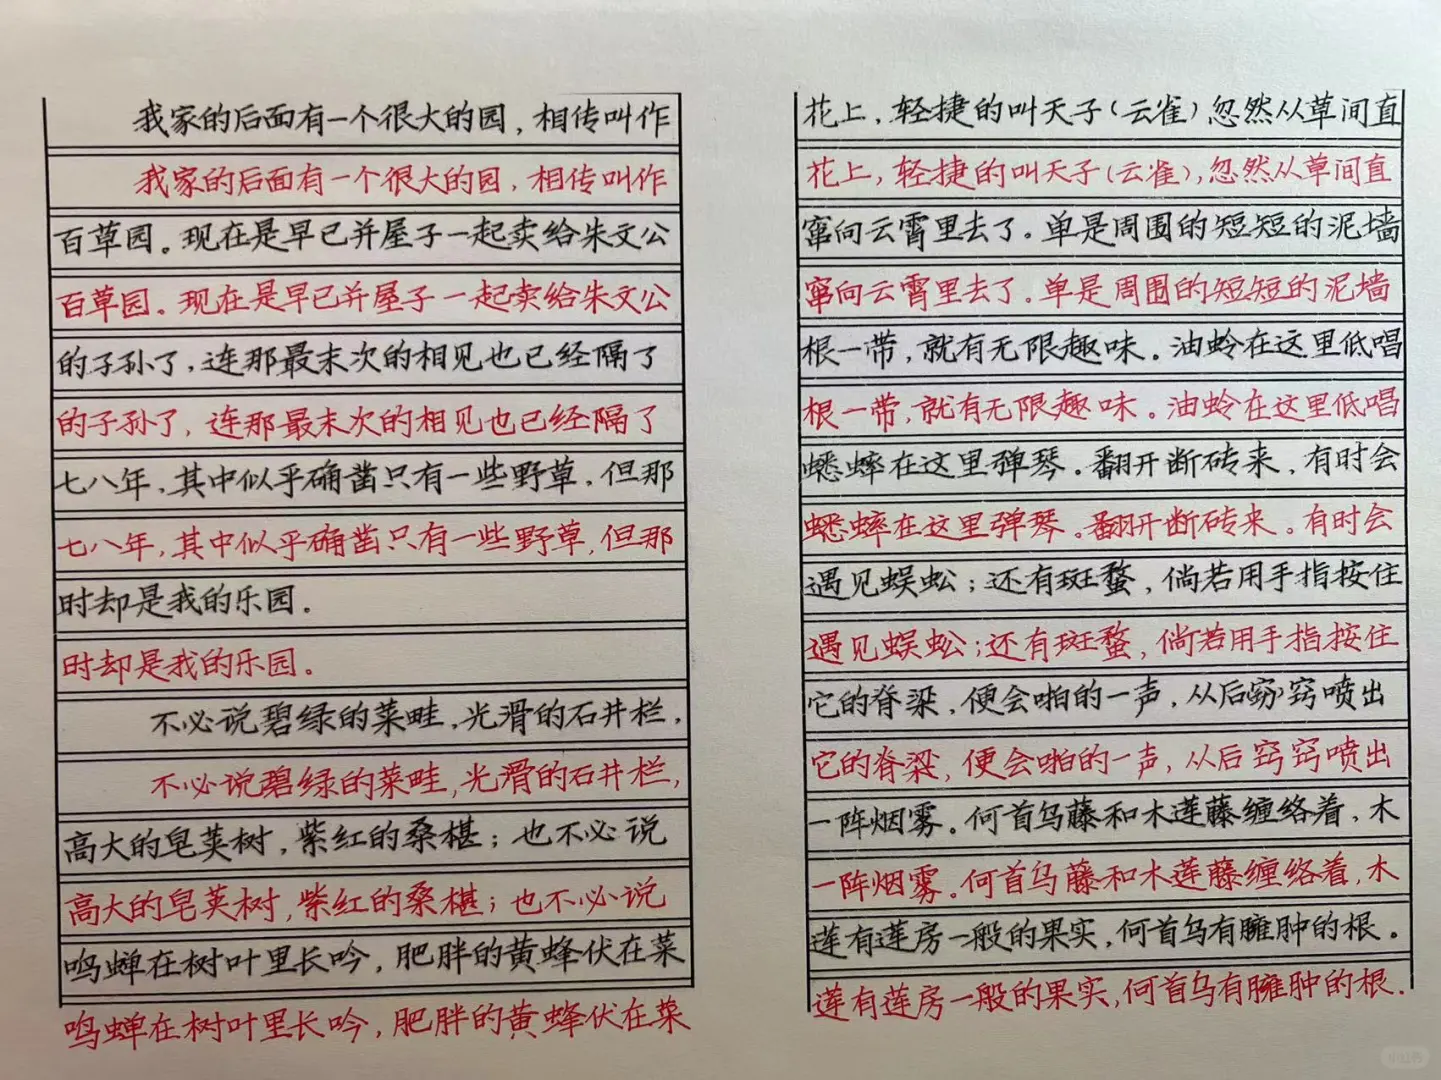 我家的后面有一个很大的园，相传叫作
我家的后面有一个很大的园，相传叫作
百草园。现在是早已并屋子一起卖给朱文公
百草园。现在是早已并屋子一起卖给朱文公
的子孙了，连那最末次的相见也已经隔了
的子孙了，连那最末次的相见也已经隔了
七八年，其中似乎确凿只有一些野草，但那
七八年，其中似乎确凿只有一些野草，但那
时却是我的乐园。
时却是我的乐园。
不必说碧绿的菜畦，光滑的石井栏，
不必说碧绿的菜畦，光滑的石井栏，
高大的皂荚树，紫红的桑椹；也不必说
高大的皂荚树，紫红的桑椹；也不必说
鸣蝉在树叶里长吟，肥胖的黄蜂伏在菜
鸣蝉在树叶里长吟，肥胖的黄蜂伏在菜
花上，轻捷的叫天子（云雀）忽然从草间直
花上，轻捷的叫天子（云雀），忽然从草间直
窜向云霄里去了。单是周围的短短的泥墙
窜向云霄里去了。单是周围的短短的泥墙
根一带，就有无限趣味。油蛉在这里低唱
根一带，就有无限趣味。油蛉在这里低唱
蟋蟀在这里弹琴。翻开断砖来，有时会
蟋蟀在这里弹琴。翻开断砖来。有时会
遇见蜈蚣；还有斑蝥，倘若用手指按住
遇见蜈蚣；还有斑蝥，倘若用手指按住
它的脊梁，便会啪的一声，从后窍窍喷出
它的脊梁，便会啪的一声，从后窍窍喷出
一阵烟雾。何首乌藤和木莲藤缠络着，木
一阵烟雾。何首乌藤和木莲藤缠络着，木
莲有莲房一般的果实，何首乌有臃肿的根。
莲有莲房一般的果实，何首乌有臃肿的根。
小红书